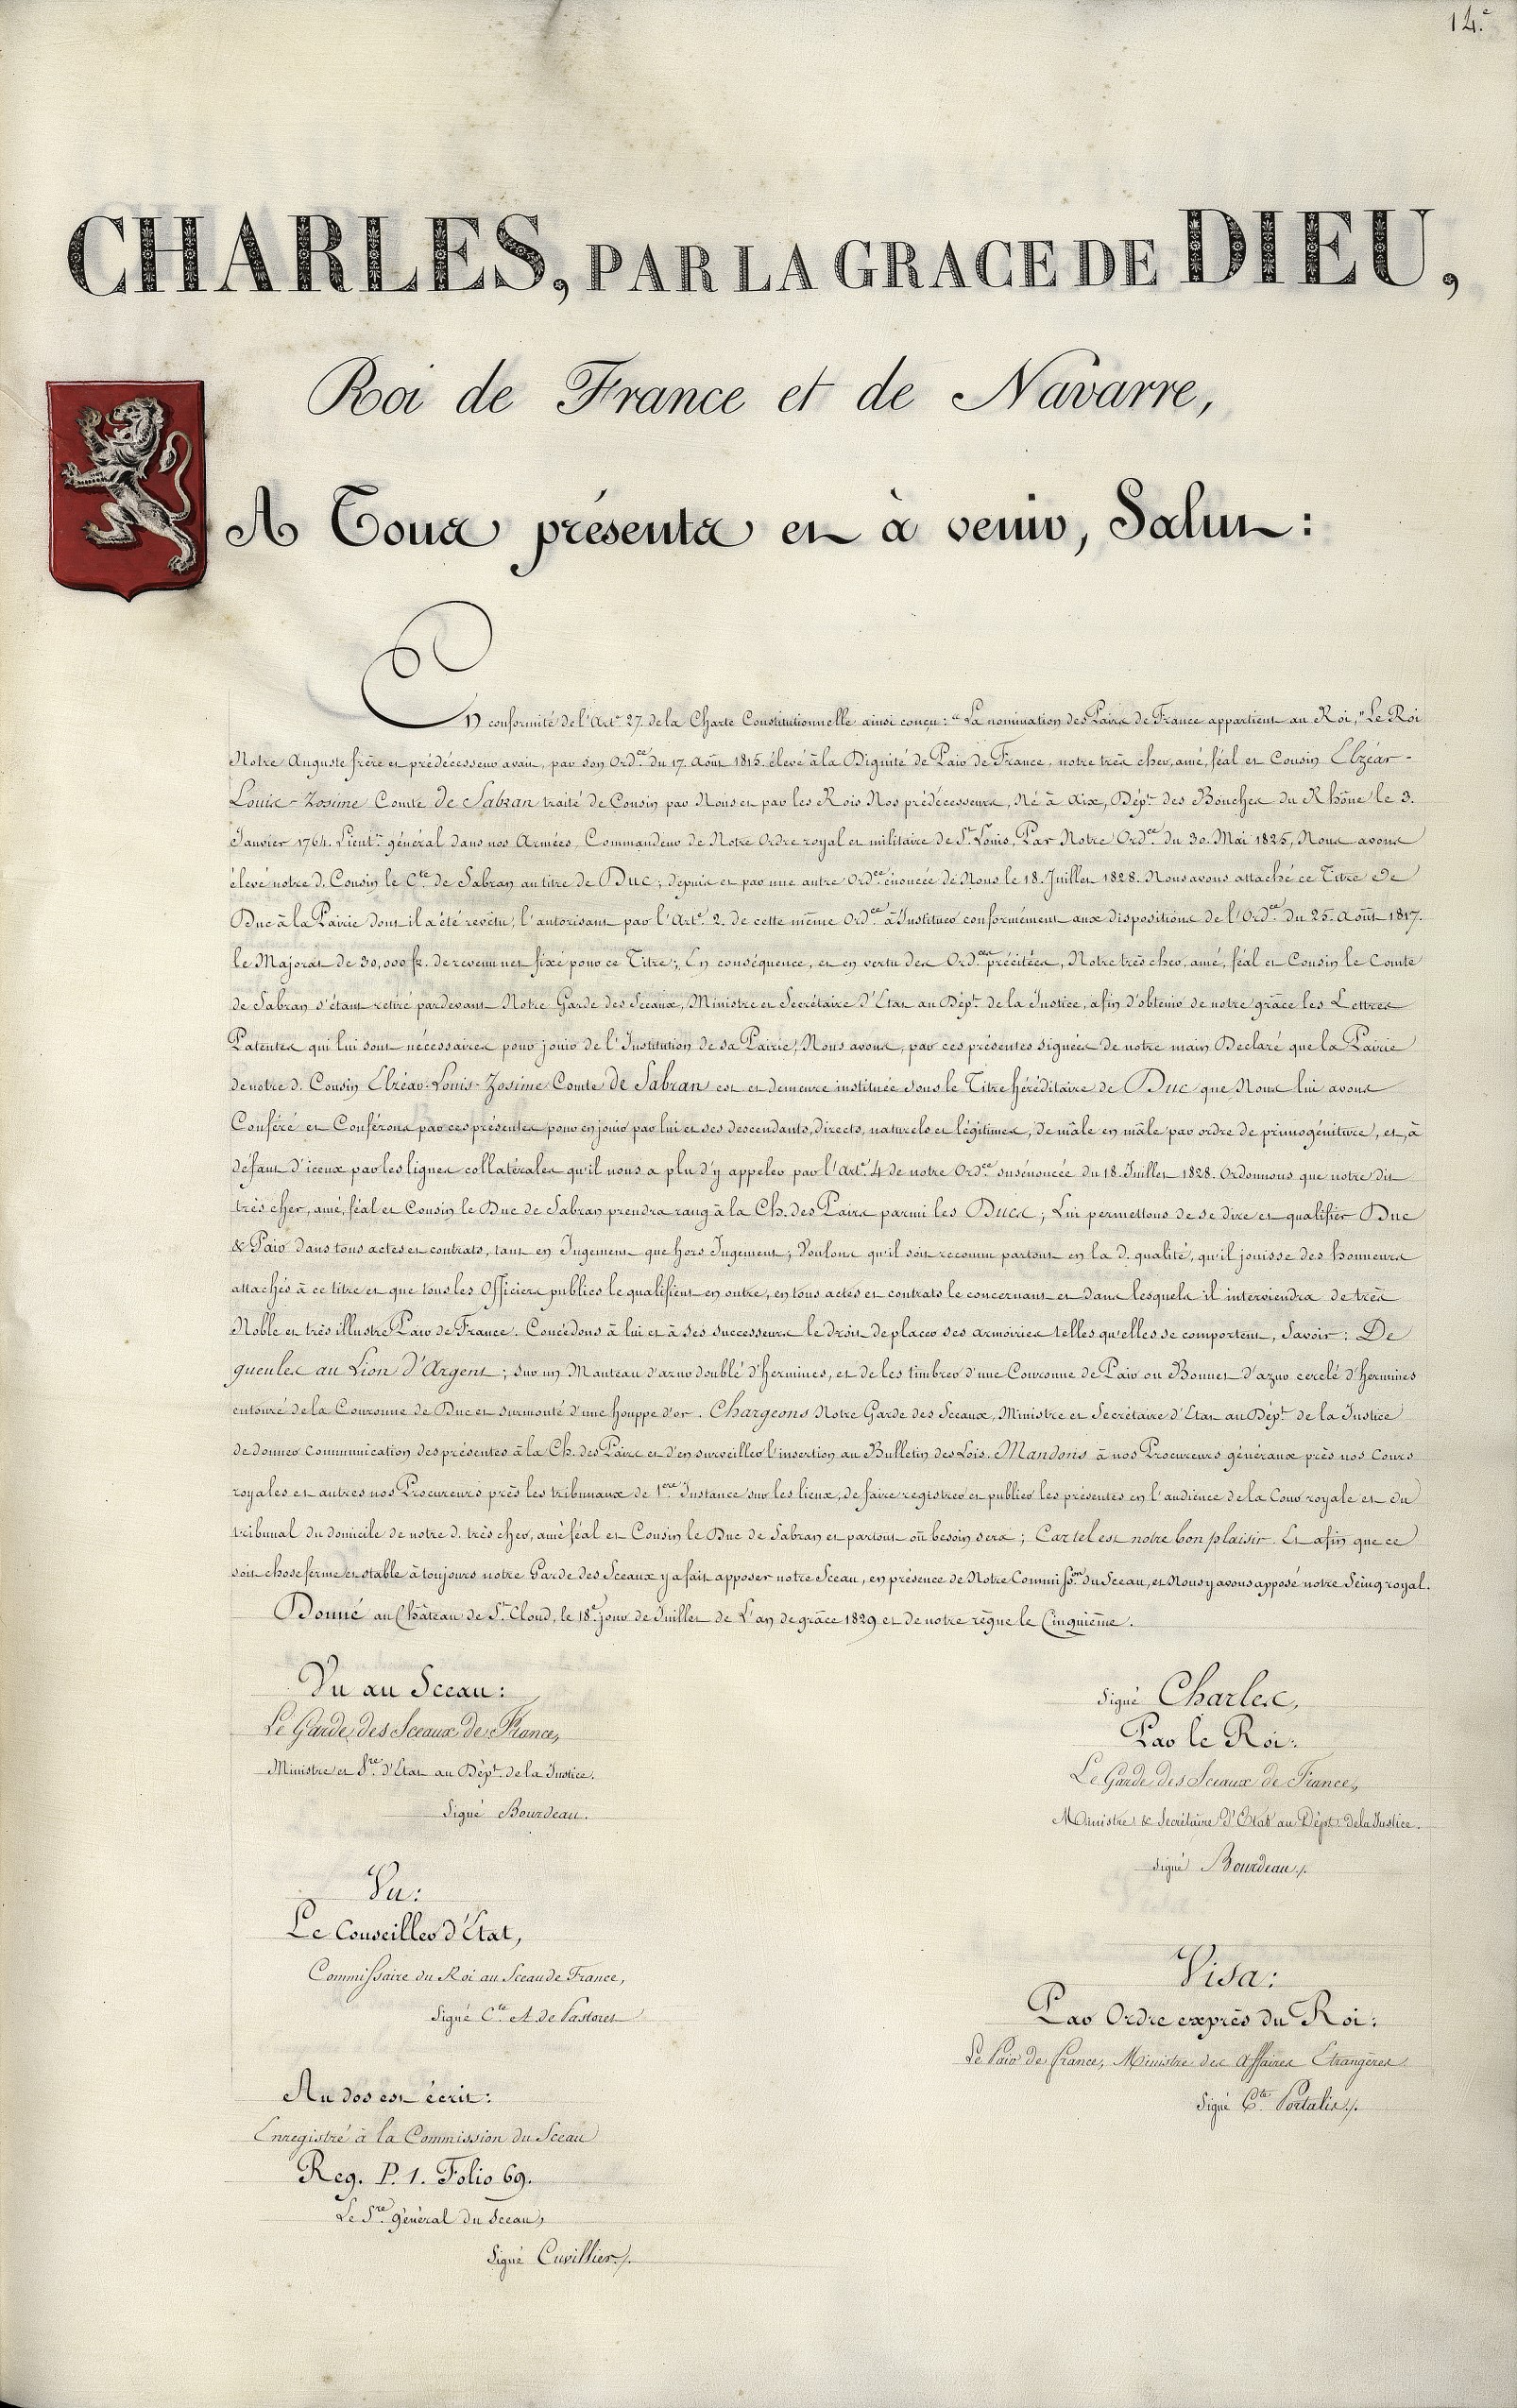 14.e
CHARLES, PAR LA GRACE DE DIEU,
Roi de France et de Navarre,
A Tous présents et à venir, Salut :
En conformité de l'Art.e 27. de la Charte Constitutionnelle ainsi conçu : " La nomination des Pairs de France appartient au Roi, " Le Roi
Notre Auguste frère et prédécesseur avait, par son Ord.ce du 17. Août 1815. élevé à la Dignité de Pair de France, notre très cher, amé, féal et Cousin Elzéar-
Louis-Zosime Comte de Sabran traité de Cousin par Nous et par les Rois Nos prédécesseurs, Né à Aix, Dép.t des Bouches du Rhône le 3.
Janvier 1764. Lieut.t général dans nos Armées, Commandeur de Notre Ordre royal et militaire de S.t Louis, Par Notre Ord.ce du 30. Mai 1825, Nous avons
élevé notre d. Cousin le C.te de Sabran au titre de Duc ; depuis et par une autre Ord.ce énoncée de Nous le 18. Juillet 1828. Nous avons attaché ce Titre de
Duc à la Pairie dont il a été revêtu, l'autorisant par l'Art.e 2. de cette même Ord.ce à Instituer conformément aux dispositions de l'Ord.ce du 25. Août 1817.
le Majorat de 30,000 fr. de revenu net fixé pour ce Titre ; En conséquence, et en vertu des Ord.ces précitées, Notre très cher, amé, féal et Cousin le Comte
de Sabran s'étant retiré pardevant Notre Garde des Sceaux, Ministre et Secrétaire d'Etat au Dép.t de la Justice, afin d'obtenir de notre grâce les Lettres
Patentes qui lui sont nécessaires pour jouir de l'Institution de sa Pairie, Nous avons, par ces présentes signées de notre main Declaré que la Pairie
de notre d. Cousin Elzéar-Louis-Zosime Comte de Sabran est et demeure instituée sous le Titre héréditaire de Duc que Nous lui avons
Conféré et Conférons par ces présentes pour en jouir par lui et ses descendants, directs, naturels et légitimes, de mâle en mâle par ordre de primogéniture, et, à
défaut d'iceux par les lignes collatérales qu'il nous a plu d'y appeler par l'Art.e 4 de notre Ord.ce susénoncée du 18. Juillet 1828. Ordonnons que notre dit
très cher, amé, féal et Cousin le Duc de Sabran prendra rang à la Ch. des Pairs parmi les Ducs ; Lui permettons de se dire et qualifier Duc
& Pair dans tous actes et contrats, tant en Jugement que hors Jugement ; Voulons qu'il soit reconnu partout en la d. qualité, qu'il jouisse des honneurs
attachés à ce titre et que tous les Officiers publics le qualifient en outre, en tous actes et contrats le concernant et dans lesquels il interviendra de très
Noble et très illustre Pair de France. Concédons à lui et à ses successeurs le droit de placer ses armoiries telles qu'elles se comportent, Savoir : De
gueules au Lion d'Argent ; sur un Manteau d'azur doublé d'hermines, et de les timbrer d'une Couronne de Pair ou Bonnet d'azur cerclé d'hermines
entouré de la Couronne de Duc et surmonté d'une houppe d'or. Chargeons Notre Garde des Sceaux, Ministre et Secrétaire d'Etat au Dép.t de la Justice
de donner communication des présentes à la Ch. des Pairs et d'en surveiller l'insertion au Bulletin des Lois. Mandons à nos Procureurs généraux près nos Cours
royales et autres nos Procureurs près les tribunaux de 1ere Instance sur les lieux, de faire registrer et publier les présentes en l'audience de la Cour royale et du
tribunal du domicile de notre d. très cher, amé féal et Cousin le Duc de Sabran et partout où besoin sera ; Car tel est notre bon plaisir. Et afin que ce
soit chose ferme et stable à toujours notre Garde des Sceaux y a fait apposer notre Sceau, en présence de Notre Commisson. du Sceau, et Nous y avons apposé notre Seing royal.
Donné au Château de S.t Cloud, le 18.e jour de Juillet de L'an de grâce 1829 et de notre règne le Cinquième.
Vu au Sceau :
Le Garde des Sceaux de France,
Ministre et S.re d'Etat au Dép.t de la Justice.
Signé Bourdeau.
Signé Charles,
Par le Roi :
Le Garde des Sceaux de France,
Ministre & Secrétaire d'Etat au Dépt. de la Justice.
Signé Bourdeau ./.
Vu :
Le Conseiller d'Etat,
Commissaire du Roi au Sceau de France,
Signé C.te A de Pastoret
Visa :
Par Ordre exprès du Roi :
Le Pair de france, Ministre des Affaires Etrangères
Signé C.te Portalis ./.
Au dos est écrit :
Enregistré à la Commission du Sceau
Reg. P. 1. Folio 69.
Le S.re général du Sceau,
Signé Cuvillier ./.